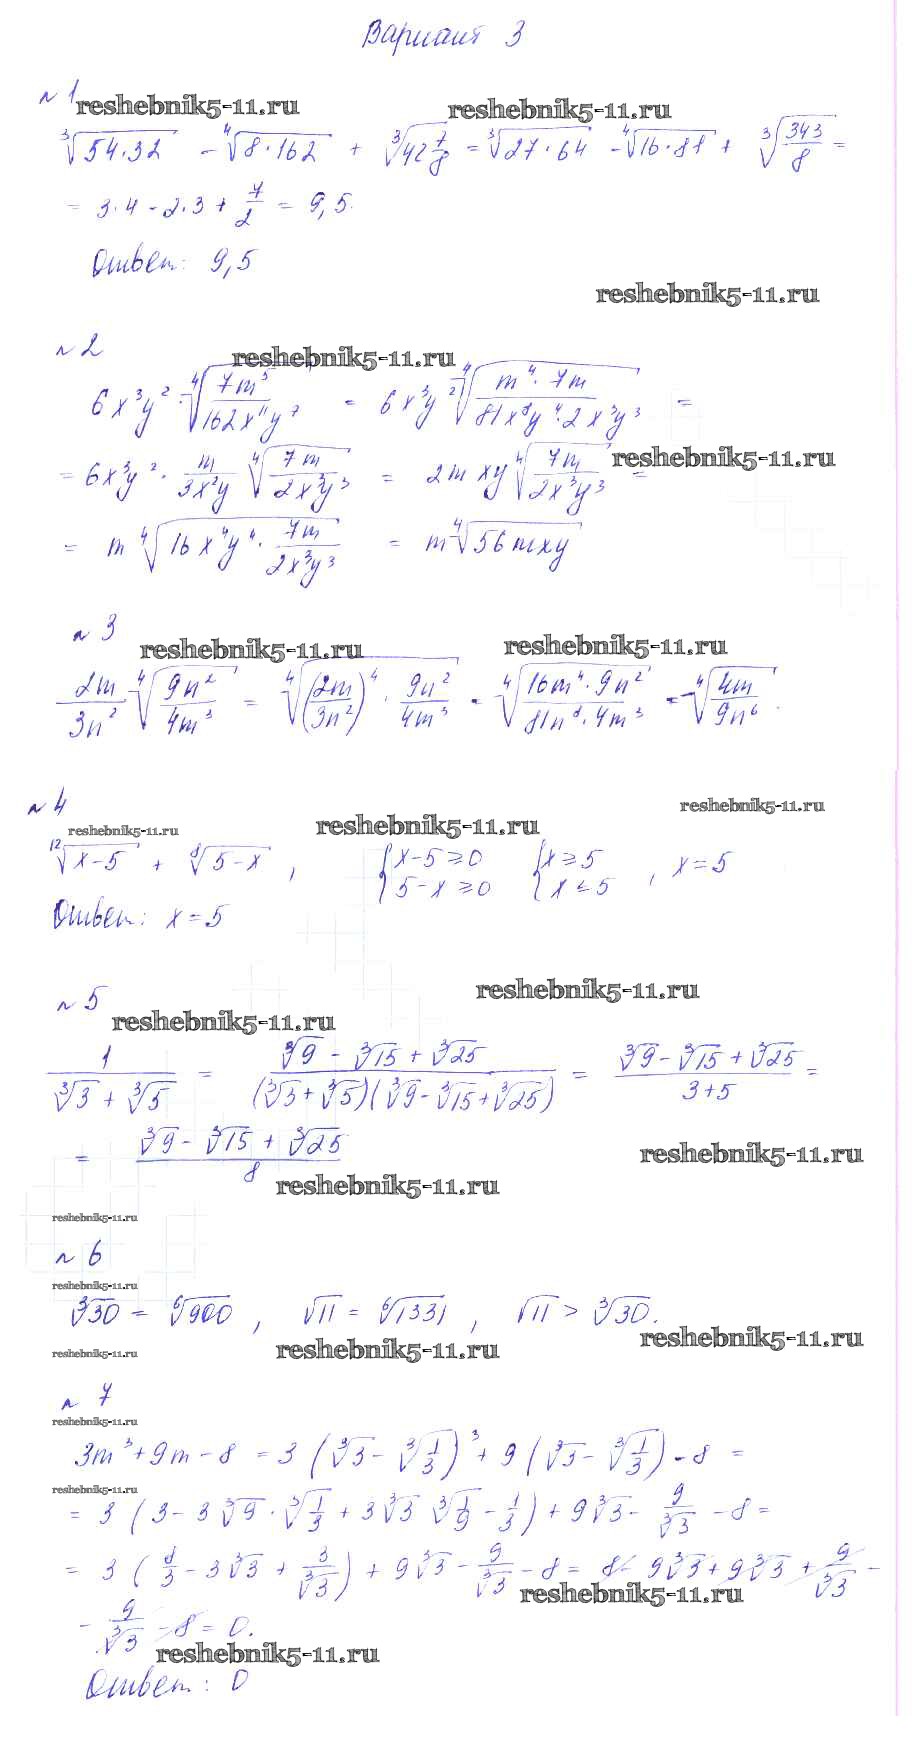 Вариант 3
№1
reshebnik5-11.ru reshebnik5-11.ru
∛(54·32) - ∜(8·162) + ∛(42 7/8) = ∛(27·64) - ∜(16·81) + ∛(343/8) =
= 3·4 - 2·3 + 7/2 = 9,5.
Ответ: 9,5
reshebnik5-11.ru
№2
reshebnik5-11.ru
6x³y² · ∜(7m⁵/(162x¹¹y⁷)) = 6x³y² ∜(m⁴·7m/(81x⁸y⁴·2x³y³)) =
reshebnik5-11.ru
= 6x³y² · m/(3x²y) ∜(7m/(2x³y³)) = 2mxy ∜(7m/(2x³y³)) =
= m ∜(16x⁴y⁴ · 7m/(2x³y³)) = m ∜(56mxy)
№3
reshebnik5-11.ru reshebnik5-11.ru
2m/(3n²) ∜(9n²/(4m³)) = ∜((2m/(3n²))⁴ · 9n²/(4m³)) = ∜(16m⁴·9n²/(81n⁸·4m³)) = ∜(4m/(9n⁶)).
№4
reshebnik5-11.ru reshebnik5-11.ru reshebnik5-11.ru
¹²√(x-5) + ⁸√(5-x) , { x-5≥0 5-x≥0 { x≥5 x≤5 , x=5
Ответ: x=5
№5
reshebnik5-11.ru
reshebnik5-11.ru
1/(∛3 + ∛5) = (∛9 - ∛15 + ∛25)/((∛3+∛5)(∛9-∛15+∛25)) = (∛9-∛15+∛25)/(3+5) =
= (∛9 - ∛15 + ∛25)/8
reshebnik5-11.ru
reshebnik5-11.ru
reshebnik5-11.ru
№6
reshebnik5-11.ru
∛30 = ⁶√900 , √11 = ⁶√1331 , √11 > ∛30.
reshebnik5-11.ru reshebnik5-11.ru reshebnik5-11.ru
№7
reshebnik5-11.ru
3m³+9m-8 = 3(∛3 - ∛(1/3))³ + 9(∛3 - ∛(1/3)) - 8 =
reshebnik5-11.ru
= 3(3 - 3∛9 · ∛(1/3) + 3∛3 ∛(1/9) - 1/3) + 9∛3 - 9/∛3 - 8 =
= 3(8/3 - 3∛3 + 3/∛3) + 9∛3 - 9/∛3 - 8 = 8 - 9∛3 + 9∛3 + 9/∛3 -
reshebnik5-11.ru
- 9/∛3 - 8 = 0.
reshebnik5-11.ru
Ответ: 0